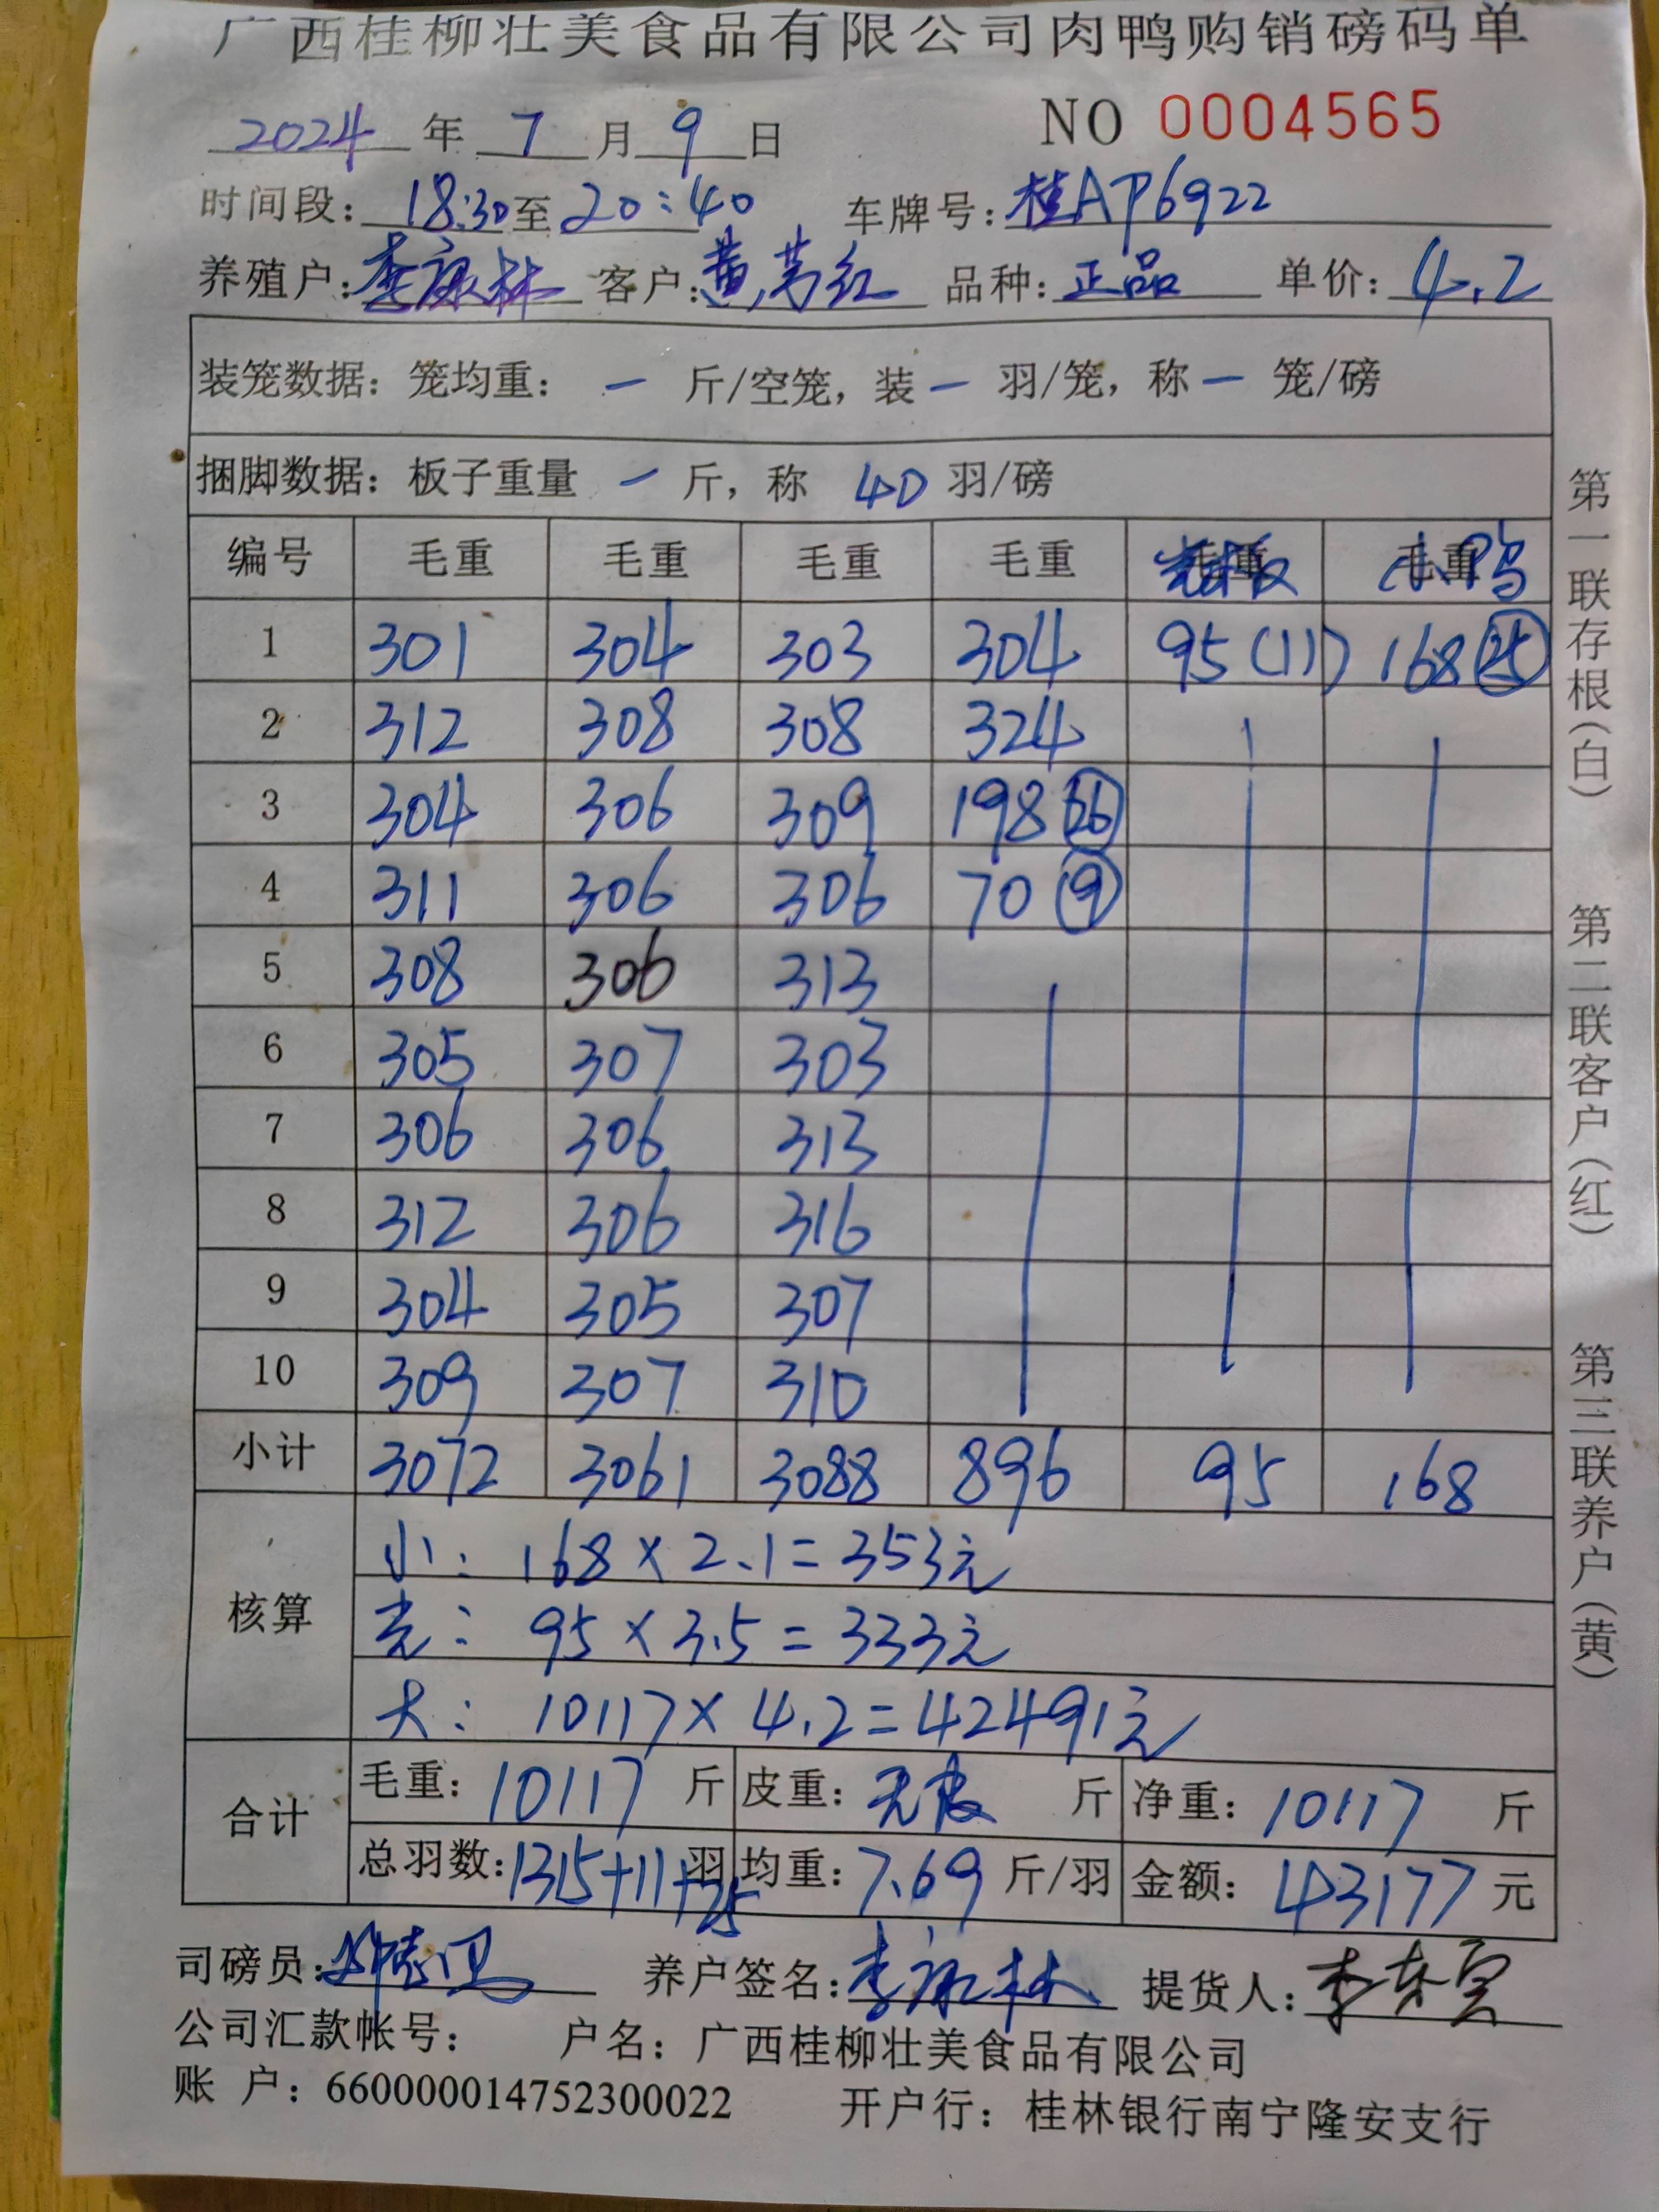 广西桂柳壮美食品有限公司肉鸭购销磅码单
2024 年 7 月 9 日 NO 0004565
时间段: 18:30 至 20:40 车牌号: 桂AP6922
养殖户: 李康林 客户: 黄芳红 品种: 正品 单价: 4.2
装笼数据: 笼均重: 一 斤/空笼, 装 一 羽/笼, 称 一 笼/磅
捆脚数据: 板子重量 一 斤, 称 40 羽/磅
编号 毛重 毛重 毛重 毛重 毛重 毛重 小鸭
1 301 304 303 304 95 (11) 168 25
2 312 308 308 324
3 304 306 309 198 26
4 311 306 306 70 9
5 308 306 313
6 305 307 303
7 306 306 313
8 312 306 316
9 304 305 307
10 309 307 310
小计 3072 3061 3088 896 95 168
核算
小: 168 × 2.1 = 353元
光: 95 × 3.5 = 333元
大: 10117 × 4.2 = 42491元
合计
毛重: 10117 斤 皮重: 斤 净重: 10117 斤
总羽数: 1315+11+25 羽 均重: 7.69 斤/羽 金额: 43177 元
司磅员: 养户签名: 李康林 提货人:
公司汇款帐号: 户名: 广西桂柳壮美食品有限公司
账 户: 660000014752300022 开户行: 桂林银行南宁隆安支行
第一联存根(白) 第二联客户(红) 第三联养户(黄)